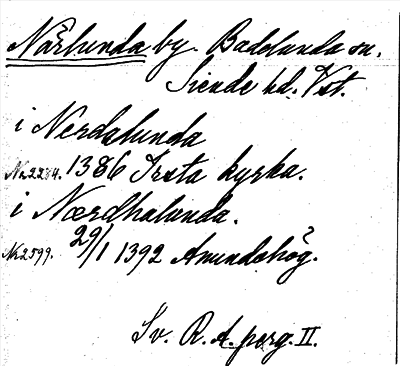 Närlunda by Badelunda sn.
Siende hd. Vst.
i Nerdalunda
Nr 2284. 1386 Irsta kyrka.
i Nærdhalunda.
Nr 2599. 29/1 1392 Anundshög?
Sv. R. A. perg. II.